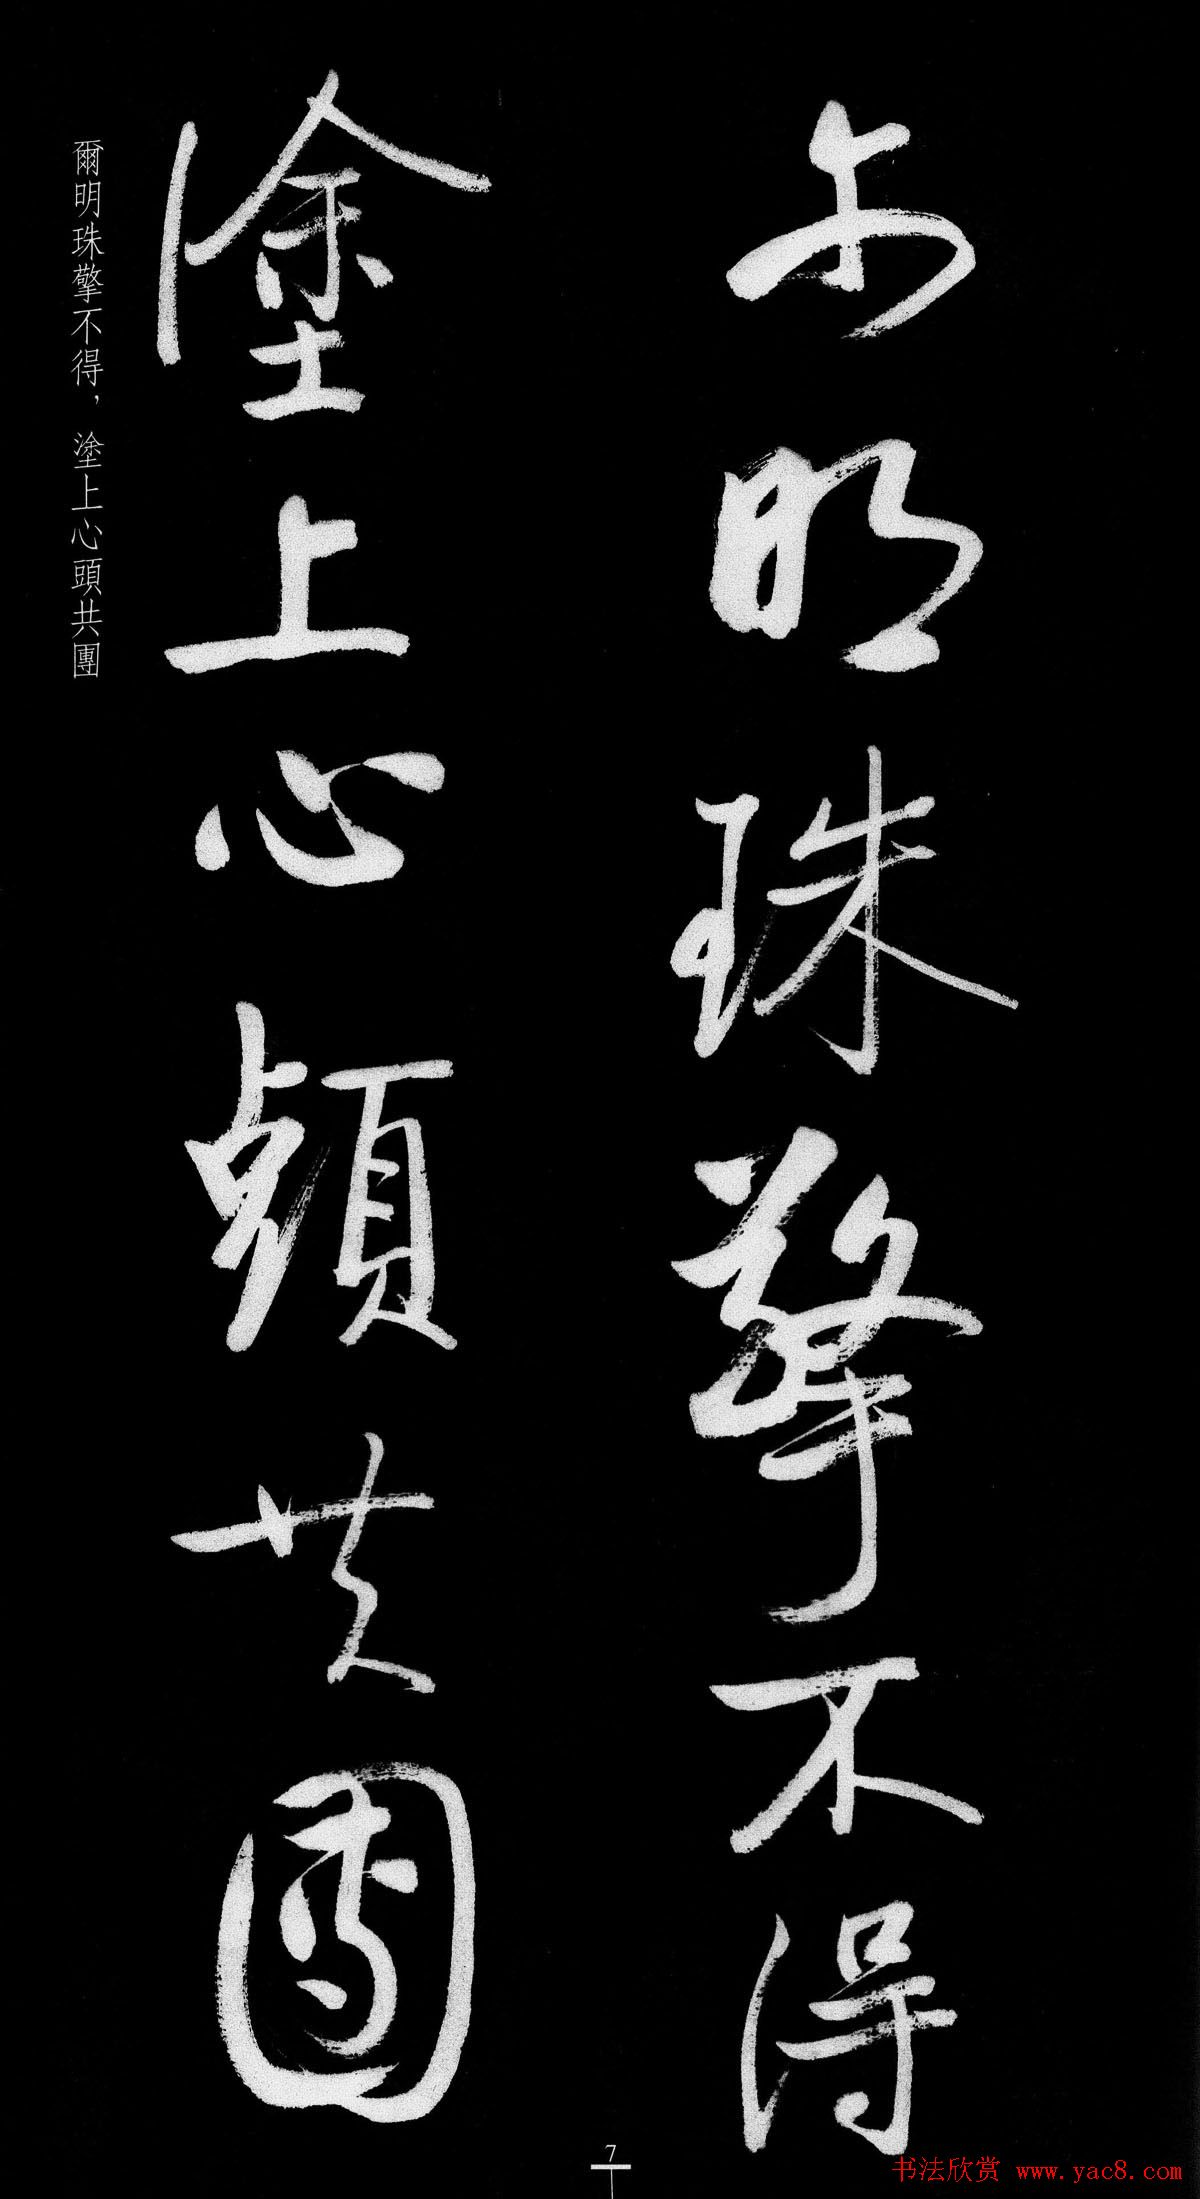 尔明珠擎不得
塗上心頭共團
爾明珠擎不得，塗上心頭共團
7
书法欣赏 www.yac8.com